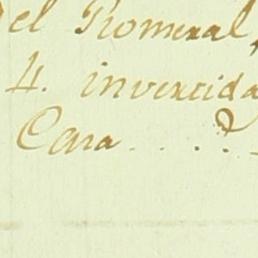 el Romeral,
4. invertida
Cera . . . . .